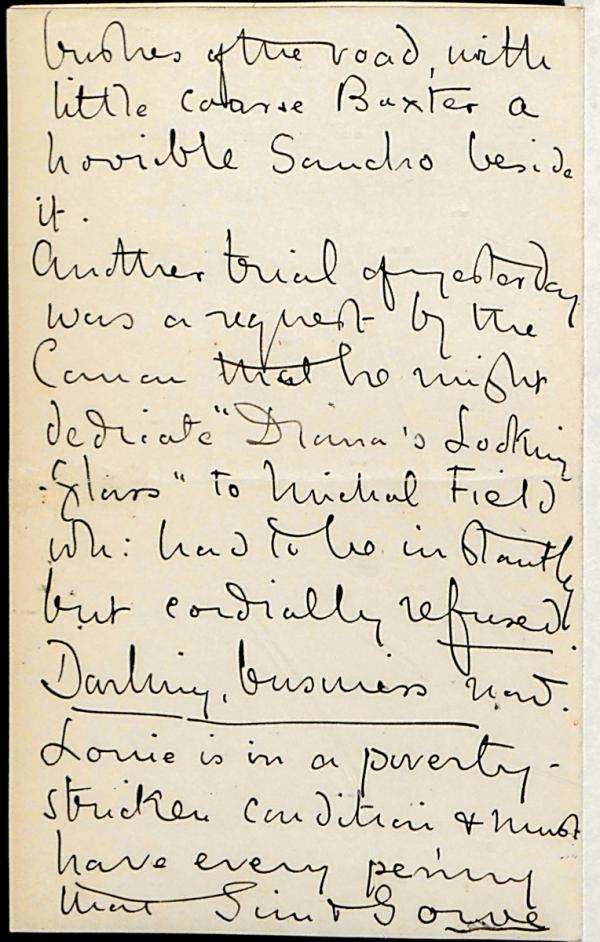 bushes of the road, with
little coarse Baxter a
horrible Sancho beside
it.
Another trial of yesterday
was a request by the
Canon that he might
dedicate "Diana's Looking
-Glass" to Michael Field
wh: had to be instantly
but cordially refused.
Darling, business now.
Louie is in a poverty-
stricken condition & must
have every penny
that Sim & I owe